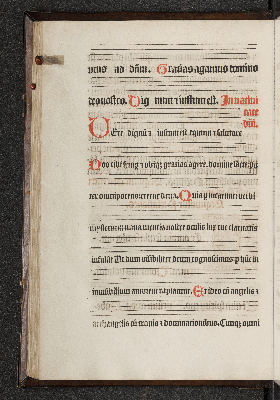 mus ad dñm. Gratias agamus domino
deo nostro. Dig num & iustum est. In nativi
tate
dñi.
VEre dignũ & iustum est equum & salutare
Nos tibi semp & ubiq; gratias agere. domine sctẽ pr̃
omnipotens eterne deus. Quia p incarnati verbi
mysterium nova mentis nostre oculis lux tue claritatis
infulsit. Ut dum visibiliter deum cognoscimus p hũc in
invisibiliũm amorem rapiamur. Et ideo cũ angelis &
archangelis cũ tronis & dominationibus. Cumq; omni